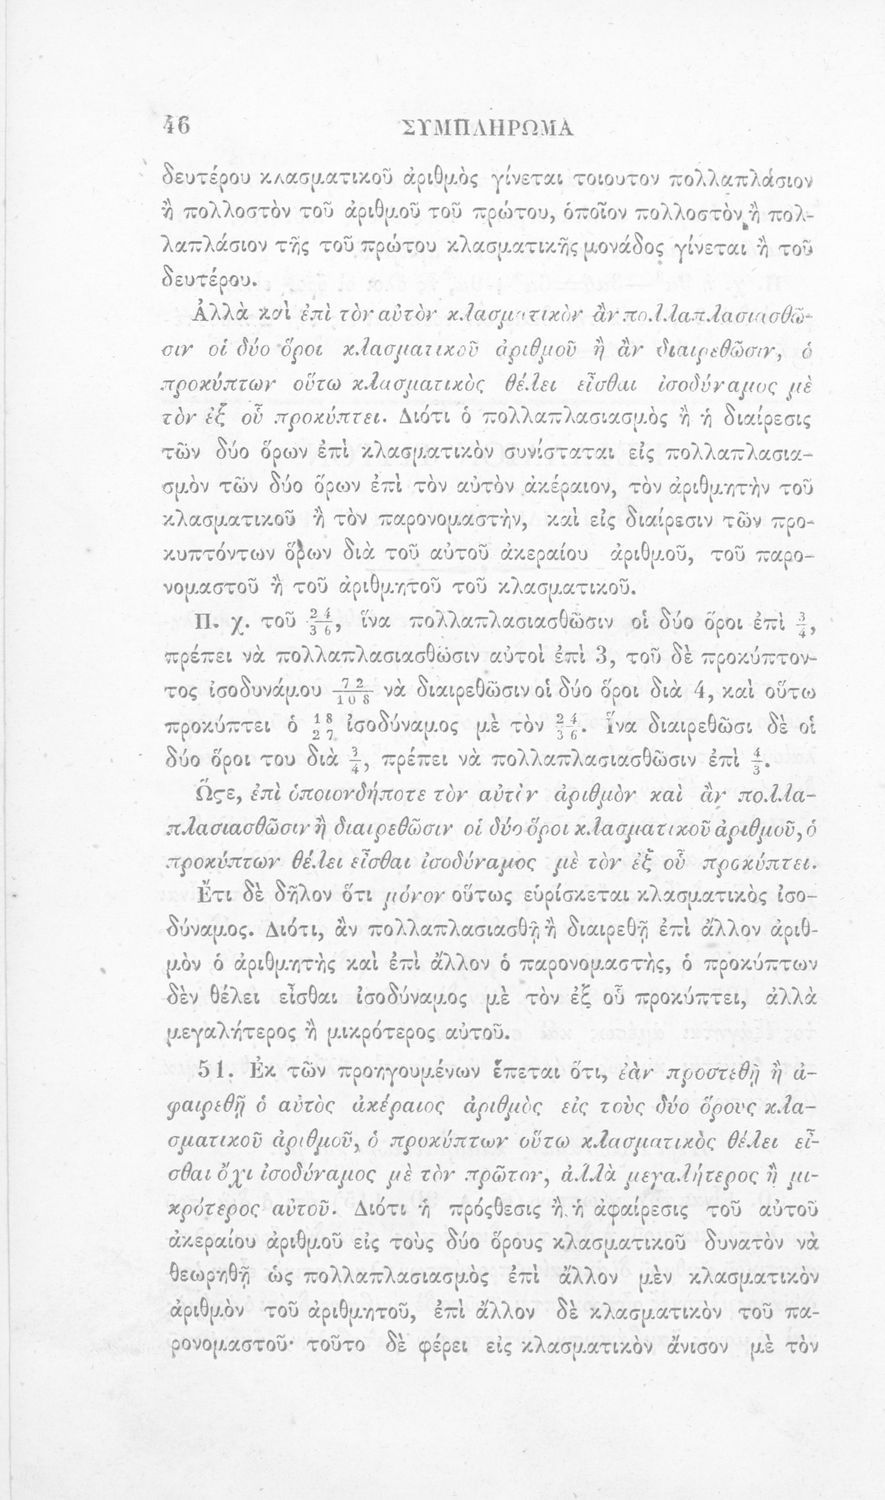 46 ΣΥΜΠΛΗΡΩΜΑ
δευτέρου κλασματικοῦ ἀριθμὸς γίνεται τοιουτον πολλαπλάσιον
ἢ πολλοστὸν τοῦ ἀριθμοῦ τοῦ πρώτου, ὁποῖον πολλοστὸν ἢ πολ-
λαπλάσιον τῆς τοῦ πρώτου κλασματικῆς μονάδος γίνεται ἢ τοῦ
δευτέρου.
Ἀλλὰ καὶ ἐπὶ τὸν αὐτὸν κλασματικὸν ἂν πολλαπλασιασθῶ-
σιν οἱ δύο ὅροι κλασματικοῦ ἀριθμοῦ ἢ ἂν διαιρεθῶσιν, ὁ
προκύπτων οὕτω κλασματικὸς θέλει εἶσθαι ἰσοδύναμος μὲ
τὸν ἐξ οὗ προκύπτει. Διότι ὁ πολλαπλασιασμὸς ἢ ἡ διαίρεσις
τῶν δύο ὅρων ἐπὶ κλασματικὸν συνίσταται εἰς πολλαπλασια-
σμὸν τῶν δύο ὅρων ἐπὶ τὸν αὐτὸν ἀκέραιον, τὸν ἀριθμητὴν τοῦ
κλασματικοῦ ἢ τὸν παρονομαστὴν, καὶ εἰς διαίρεσιν τῶν προ-
κυπτόντων ὅρων διὰ τοῦ αὐτοῦ ἀκεραίου ἀριθμοῦ, τοῦ παρο-
νομαστοῦ ἢ τοῦ ἀριθμητοῦ τοῦ κλασματικοῦ.
Π. χ. τοῦ 24/36, ἵνα πολλαπλασιασθῶσιν οἱ δύο ὅροι ἐπὶ 3/4,
πρέπει νὰ πολλαπλασιασθῶσιν αὐτοὶ ἐπὶ 3, τοῦ δὲ προκύπτον-
τος ἰσοδυνάμου 72/108 νὰ διαιρεθῶσιν οἱ δύο ὅροι διὰ 4, καὶ οὕτω
προκύπτει ὁ 18/27 ἰσοδύναμος μὲ τὸν 24/36. Ἵνα διαιρεθῶσι δὲ οἱ
δύο ὅροι του διὰ 3/4, πρέπει νὰ πολλαπλασιασθῶσιν ἐπὶ 4/3.
Ὥςε, ἐπὶ ὁποιονδήποτε τὸν αὐτὸν ἀριθμὸν καὶ ἂν πολλα-
πλασιασθῶσιν ἢ διαιρεθῶσιν οἱ δύο ὅροι κλασματικοῦ ἀριθμοῦ, ὁ
προκύπτων θέλει εἶσθαι ἰσοδύναμος μὲ τὸν ἐξ οὗ προκύπτει.
Ἔτι δὲ δῆλον ὅτι μόνον οὕτως εὑρίσκεται κλασματικὸς ἰσο-
δύναμος. Διότι, ἂν πολλαπλασιασθῇ ἢ διαιρεθῇ ἐπὶ ἄλλον ἀριθ-
μὸν ὁ ἀριθμητὴς καὶ ἐπὶ ἄλλον ὁ παρονομαστὴς, ὁ προκύπτων
δὲν θέλει εἶσθαι ἰσοδύναμος μὲ τὸν ἐξ οὗ προκύπτει, ἀλλὰ
μεγαλήτερος ἢ μικρότερος αὐτοῦ.
51. Ἐκ τῶν προηγουμένων ἕπεται ὅτι, ἐὰν προστεθῇ ἢ ἀ-
φαιρεθῇ ὁ αὐτὸς ἀκέραιος ἀριθμὸς εἰς τοὺς δύο ὅρους κλα-
σματικοῦ ἀριθμοῦ, ὁ προκύπτων οὕτω κλασματικὸς θέλει εἶ-
σθαι ὄχι ἰσοδύναμος μὲ τὸν πρῶτον, ἀλλὰ μεγαλήτερος ἢ μι-
κρότερος αὐτοῦ. Διότι ἡ πρόςθεσις ἢ ἡ ἀφαίρεσις τοῦ αὐτοῦ
ἀκεραίου ἀριθμοῦ εἰς τοὺς δύο ὅρους κλασματικοῦ δυνατὸν νὰ
θεωρηθῇ ὡς πολλαπλασιασμὸς ἐπὶ ἄλλον μὲν κλασματικὸν
ἀριθμὸν τοῦ ἀριθμητοῦ, ἐπὶ ἄλλον δὲ κλασματικὸν τοῦ πα-
ρονομαστοῦ· τοῦτο δὲ φέρει εἰς κλασματικὸν ἄνισον μὲ τὸν